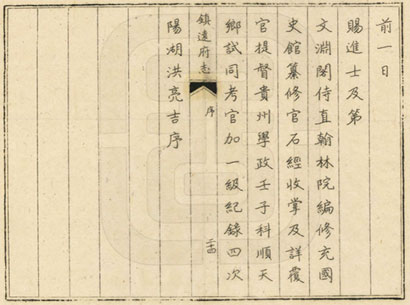 前一日
賜進士及第
文淵閣侍直翰林院編修充國
史館纂修官石經收掌及詳覆
官提督貴州學政壬子科順天
鄉試同考官加一級紀錄四次
鎮遠府志
序
陽湖洪亮吉序